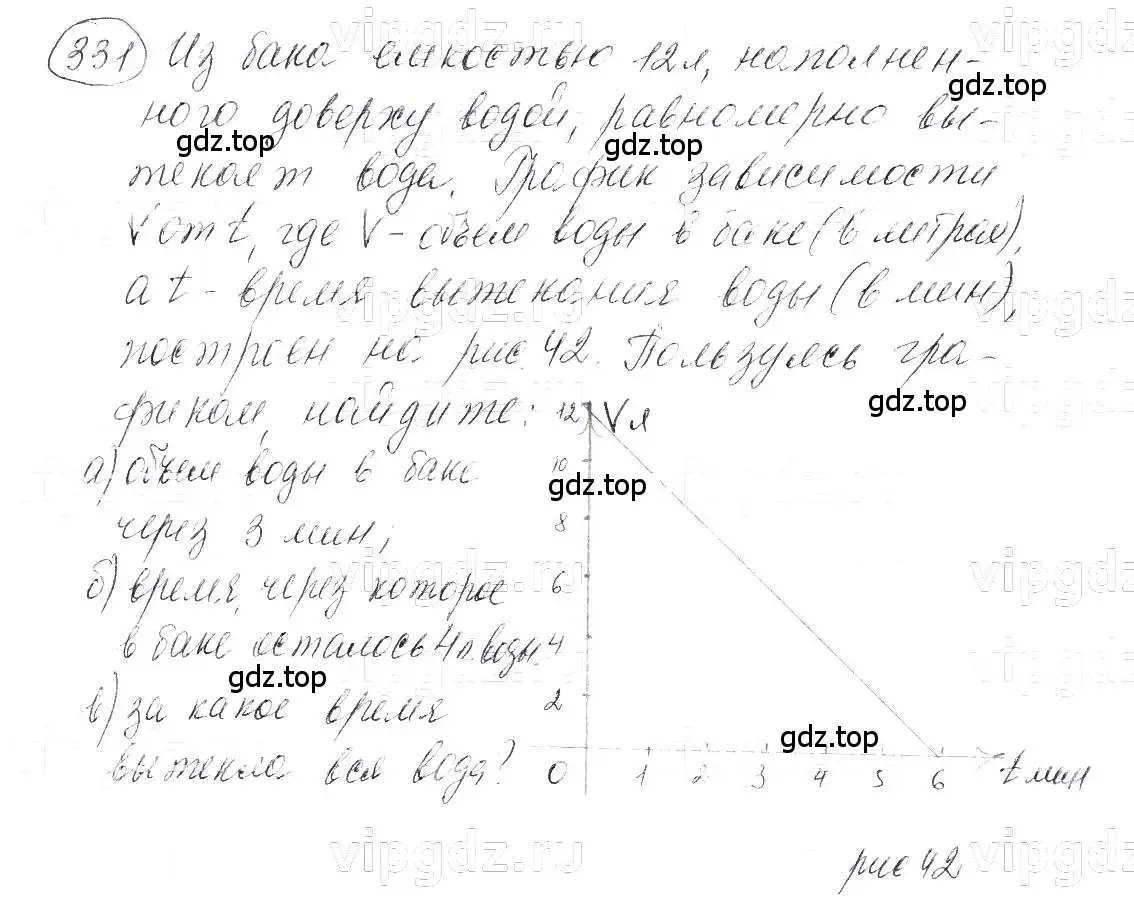 331 Из бака емкостью 12 л, наполнен-
ного доверху водой, равномерно вы-
текает вода. График зависимости
V от t, где V - объем воды в баке (в литрах),
а t - время вытекания воды (в мин),
построен на рис. 42. Пользуясь гра-
фиком, найдите:
а) объем воды в баке
через 3 мин;
б) время, через которое
в баке осталось 4 л. воды.
в) за какое время
вытекла вся вода?
12 V л
10
8
6
4
2
0 1 2 3 4 5 6 t мин
рис 42
gdz.top
gdz.top
gdz.top
gdz.top
gdz.top
gdz.top
gdz.top
vipgdz.ru
vipgdz
vipgdz.ru
vipgdz
vipgdz.ru
vipgdz
vipgdz.ru
vipgdz